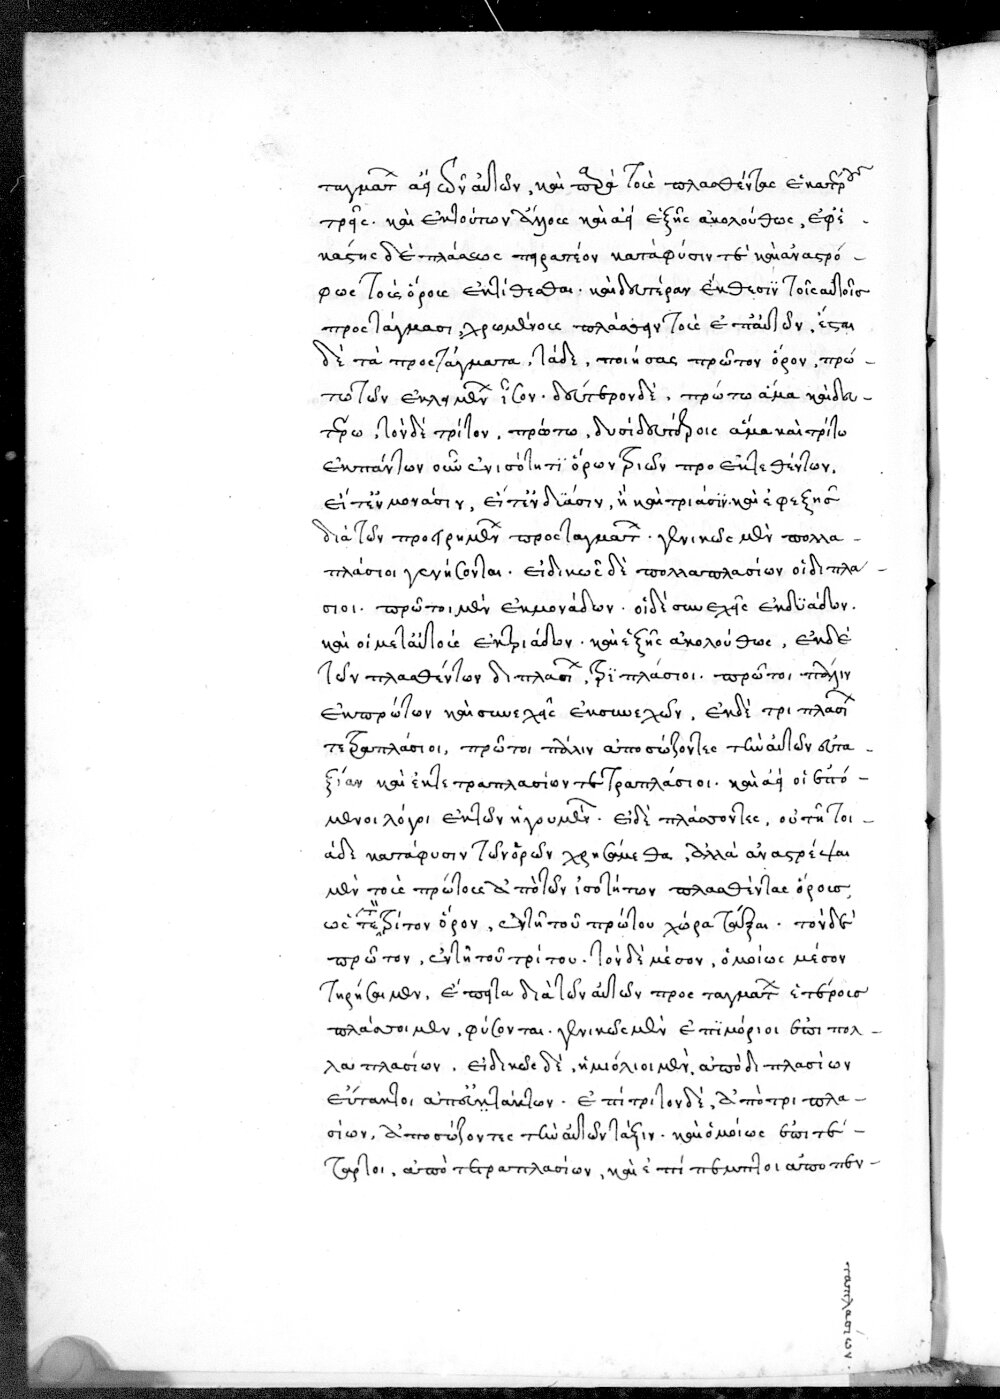 ταγμάτων ἀεὶ τῶν αὐτῶν, καὶ παρὰ τοὺς πλασθέντας ἑκατέρους
τρεῖς. καὶ ἐκ τούτων ἄλλους καὶ ἀεὶ ἑξῆς ἀκολούθως, ἐφ' ἑ-
κάστης δὲ πλάσεως πειρατέον κατὰ φύσιν τε καὶ ἀναστρό-
φως τοὺς ὅρους ἐκτίθεσθαι. καὶ δευτέραν ἔκθεσιν τοῖς αὐτοῖς
προστάγμασι, χρωμένους πλάσσειν τοὺς ἐπ' αὐτῶν, ἔσται
δὲ τὰ προστάγματα, τάδε, ποιήσας πρῶτον ὅρον, πρώ-
τῳ τῶν ἐκκειμένων ἴσον. δεύτερον δὲ, πρώτῳ ἅμα καὶ δευ-
τέρῳ, τὸν δὲ τρίτον, πρώτῳ, δυσὶ δευτέροις ἅμα καὶ τρίτῳ
ἐκ πάντων οὖν ἐν ἰσότητι ὅρων τριῶν προεκτεθέντων,
εἴτ' ἐν μονάσιν, εἴτ' ἐν δυάσιν, ἢ καὶ τριάσιν. καὶ ἐφεξῆς
διὰ τῶν προειρημένων προσταγμάτων. γενικῶς μὲν πολλα-
πλάσιοι γενήσονται. εἰδικῶς δὲ πολλαπλασίων οἱ διπλά-
σιοι. πρῶτοι μὲν ἐκ μονάδων. οἱ δὲ συνεχεῖς ἐκ δυάδων.
καὶ οἱ μετ' αὐτοὺς ἐκ τριάδων. καὶ ἑξῆς ἀκολούθως, ἐκ δὲ
τῶν πλασθέντων διπλασίων, τριπλάσιοι. πρῶτοι πάλιν
ἐκ πρώτων καὶ συνεχεῖς ἐκ συνεχῶν, ἐκ δὲ τριπλασίων
τετραπλάσιοι, πρῶτοι πάλιν ἀποσώζοντες τὴν αὐτῶν εὐτα-
ξίαν καὶ ἐκ τετραπλασίων τετραπλάσιοι. καὶ ἀεὶ οἱ ἑπό-
μενοι λόγοι ἐκ τῶν ἡγουμένων. εἰ δὲ πλάσσοντες, οὐ τῇ τοι-
ᾷδε κατὰ φύσιν τῶν ὅρων χρησόμεθα, ἀλλὰ ἀναστρέψαι
μὲν τοὺς πρώτους ἀπὸ τῶν ἰσοτήτων πλασθέντας ὅρους,
ὡς τὲ τρίτον ὅρον, ἐν τῇ τοῦ πρώτου χώρᾳ τάξαι. τὸν δὲ
πρῶτον, ἐν τῇ τοῦ τρίτου. τὸν δὲ μέσον, ὁμοίως μέσον
τηρήσαιμεν, ἔπειτα διὰ τῶν αὐτῶν προσταγμάτων ἑτέρους
πλάσσοιμεν, φύσονται. γενικῶς μὲν ἐπιμόριοι ἐπὶ πολ-
λαπλασίων. εἰδικῶς δὲ, ἡμιόλιοι μὲν, ἀπὸ διπλασίων
εὔτακτοι ἀπὸ εὐτάκτων. ἐπίτριτον δὲ, ἀπὸ τριπλα-
σίων, ἀποσώζοντες τὴν αὐτῶν τάξιν. καὶ ὁμοίως ἐπιτέ-
ταρτοι, ἀπὸ τετραπλασίων, καὶ ἐπίπεμπτοι ἀπὸ πεν-
ταπλασίων.